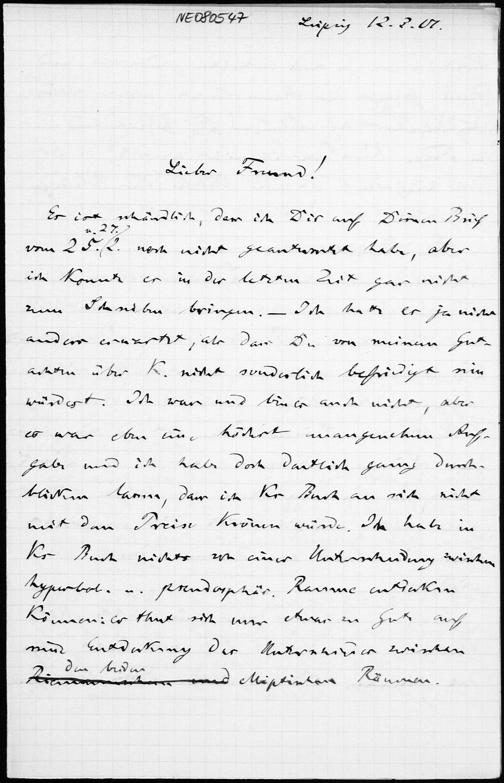 NE080547
Leipzig 12.3.01.
Lieber Freund!
Es ist schändlich, dass ich Dir auf Deinen Brief
u. 27./
vom 25./2. noch nicht geantwortet habe, aber
ich konnte es in der letzten Zeit gar nicht
zum Schreiben bringen. — Ich hatte es ja nicht
anders erwartet, als dass Du von meinem Gut-
achten über K. nicht sonderlich befriedigt sein
würdest. Ich war und bin es auch nicht, aber
es war eben eine höchst unangenehme Auf-
gabe und ich habe doch deutlich genug durch-
blicken lassen, dass ich Ks Buch an sich nicht
mit dem Preise krönen würde. Ich habe in
Ks Buch nichts von einer Unterscheidung zwischen
hyperbol. u. pseudosphär. Raume entdecken
können: er thut sich nur etwas zu Gute auf
seine Entdeckung des Unterschieds zwischen
den beiden
Riemannschen und elliptischen Räumen.